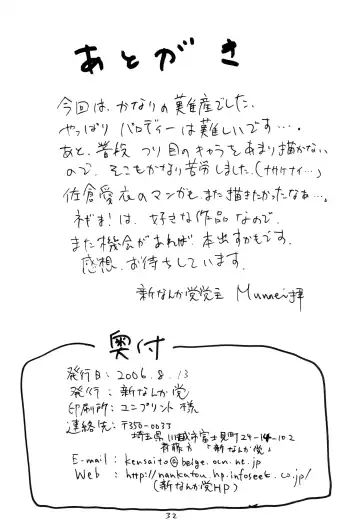 あとがき
今回は、かなりの難産でした。
やっぱり パロディーは難しいです…。
あと、普段 つり目のキャラをあまり描かない
ので、そこもかなり苦労しました。(ナサケナイ…)
佐倉愛衣のマンガもまた描きたかったなぁ…。
ネギま!は、好きな作品なので、
また機会があれば、本出すかもです。
感想、お待ちしています。
新なんか党党主 Munmei拝
奥付
発行日: 2006.8.13
発行: 新なんか党
印刷所: ユニプリント 様
連絡先: 〒350-0033
埼玉県川越市富士見町24-14-102
斉藤方 「新なんか党」
E-mail: kensaito@beige.ocn.ne.jp
Web: http://nankatou.hp.infoseek.co.jp/
(新なんか党HP)
32